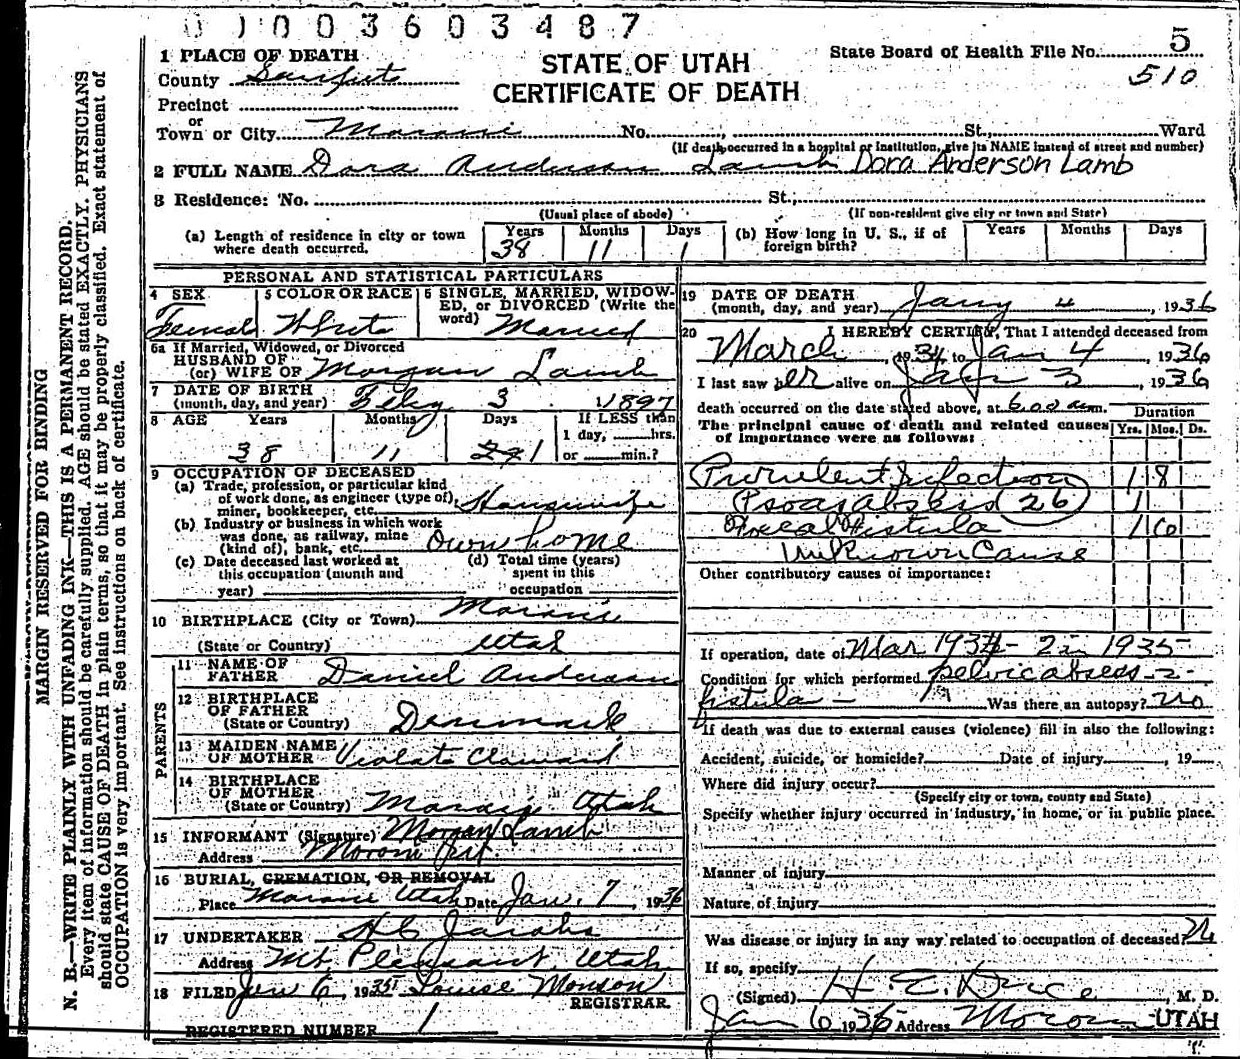 01003603487
STATE OF UTAH
CERTIFICATE OF DEATH
State Board of Health File No. 5
510
1 PLACE OF DEATH
County Sanpete
Precinct
or
Town or City Moroni No. , St., Ward
(If death occurred in a hospital or institution, give its NAME instead of street and number)
2 FULL NAME Dora Anderson Lamb Dora Anderson Lamb
3 Residence: No. St.,
(Usual place of abode) (If non-resident give city or town and State)
(a) Length of residence in city or town where death occurred. Years 38 Months 11 Days 1
(b) How long in U. S., if of foreign birth? Years Months Days
PERSONAL AND STATISTICAL PARTICULARS
4 SEX Female
5 COLOR OR RACE White
6 SINGLE, MARRIED, WIDOWED, or DIVORCED (Write the word) Married
6a If Married, Widowed, or Divorced
HUSBAND OF
(or) WIFE OF Morgan Lamb
7 DATE OF BIRTH
(month, day, and year) Feby 3 1897
8 AGE Years 38 Months 11 Days 1
If LESS than
1 day, hrs.
or min.?
9 OCCUPATION OF DECEASED
(a) Trade, profession, or particular kind
of work done, as engineer (type of),
miner, bookkeeper, etc. Housewife
(b) Industry or business in which work
was done, as railway, mine
(kind of), bank, etc. Own home
(c) Date deceased last worked at
this occupation (month and
year)
(d) Total time (years)
spent in this
occupation
10 BIRTHPLACE (City or Town) Moroni
(State or Country) Utah
PARENTS
11 NAME OF
FATHER Daniel Anderson
12 BIRTHPLACE
OF FATHER
(State or Country) Denmark
13 MAIDEN NAME
OF MOTHER Violate
14 BIRTHPLACE
OF MOTHER
(State or Country) Moroni Utah
15 INFORMANT (Signature) Morgan Lamb
Address Moroni Ut.
16 BURIAL, CREMATION, OR REMOVAL
Place Moroni Utah Date Jan. 7, 1936
17 UNDERTAKER H C Jacobs
Address Mt Pleasant Utah
18 FILED Jan 6, 1935 Louise Monson
REGISTRAR.
REGISTERED NUMBER 1
19 DATE OF DEATH
(month, day, and year) Jany 4, 1936
20 I HEREBY CERTIFY, That I attended deceased from
March, 1934 to Jan 4, 1936
I last saw her alive on Jan 3, 1936
death occurred on the date stated above, at 6:00 am.
The principal cause of death and related causes
of importance were as follows:
Duration
Yrs. Mos. Ds.
Purulent Infection 1 8
Psoas abscess 26 1
Fecal Fistula 1 6
Unknown Cause
Other contributory causes of importance:
If operation, date of Mar 1934 - 2 in 1935
Condition for which performed pelvic abscess - 2 -
fistula - Was there an autopsy? no
If death was due to external causes (violence) fill in also the following:
Accident, suicide, or homicide? Date of injury , 19
Where did injury occur?
(Specify city or town, county and State)
Specify whether injury occurred in industry, in home, or in public place.
Manner of injury
Nature of injury
Was disease or injury in any way related to occupation of deceased? No
If so, specify
(Signed) H. E. Dice, M. D.
Jan 6 1936 Address Moroni UTAH
MARGIN RESERVED FOR BINDING
N. B.—WRITE PLAINLY WITH UNFADING INK—THIS IS A PERMANENT RECORD.
Every item of information should be carefully supplied. AGE should be stated EXACTLY. PHYSICIANS
should state CAUSE OF DEATH in plain terms, so that it may be properly classified. Exact statement of
OCCUPATION is very important. See instructions on back of certificate.